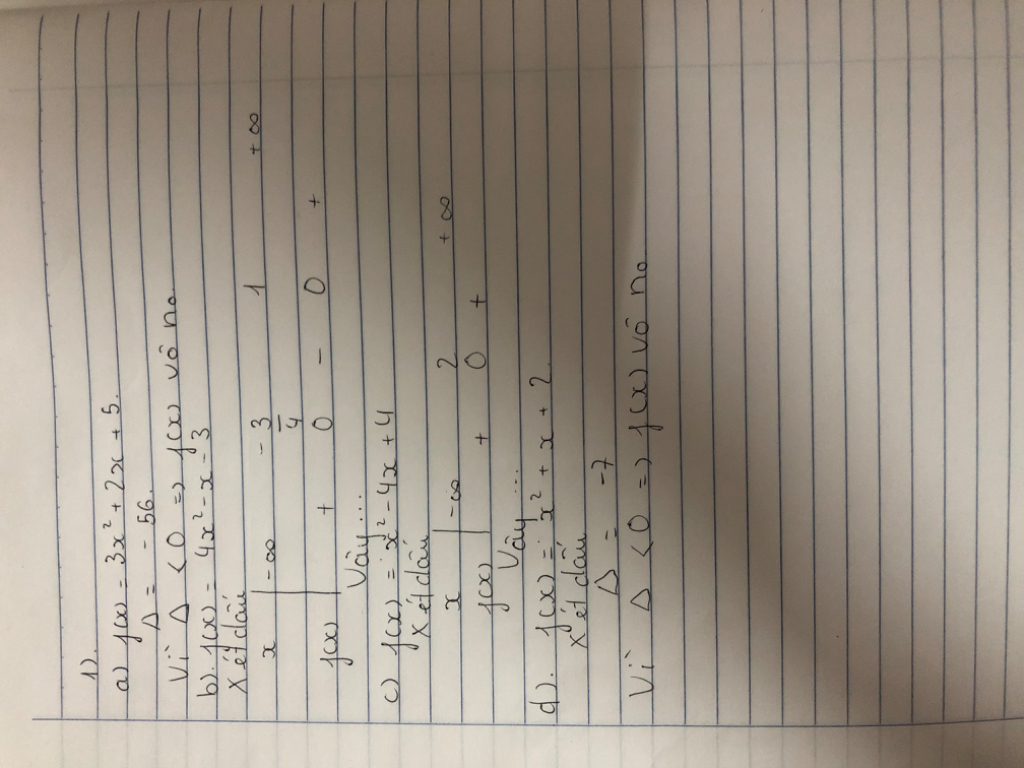 1).
a) f(x) = 3x² + 2x + 5.
Δ = - 56.
Vì Δ < 0 => f(x) vô no
b). f(x) = 4x² - x - 3
Xét dấu
x | -∞ -3/4 1 +∞
f(x) | + 0 - 0 +
Vậy ...
c) f(x) = x² - 4x + 4
Xét dấu
x | -∞ 2 +∞
f(x) | + 0 +
Vậy ...
d). f(x) = x² + x + 2.
Xét dấu
Δ = -7
Vì Δ < 0 => f(x) vô no